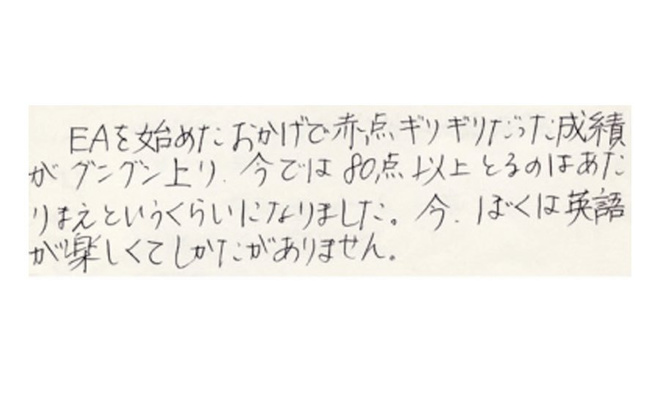 EAを始めたおかげで赤点ギリギリだった成績
がグングン上り、今では80点以上とるのはあた
りまえというくらいになりました。今、ぼくは英語
が楽しくてしかたがありません。